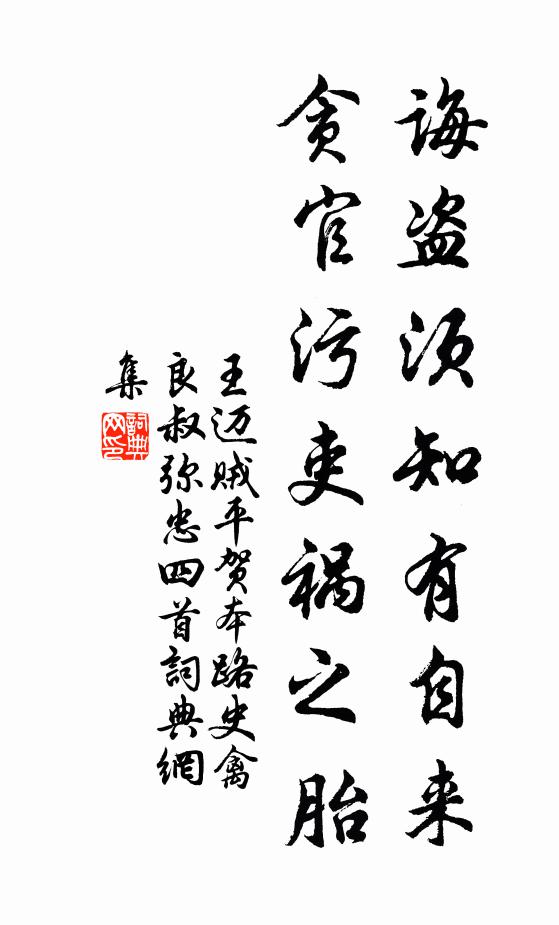 诲盗须知有自来
贪官污吏祸之胎
王迈贼平贺本路史禽
良叔弥忠四首詞典網
集
詞典
网印